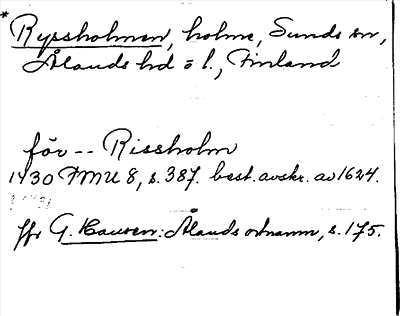 * Ryssholmen, holme, Sunds sn,
Ålands hd o l., Finland
för -- Rissholm
1430 FMU 8, s. 387. best. avskr. av 1624.
jfr G. Hausen: Ålands ortnamn, s. 175.